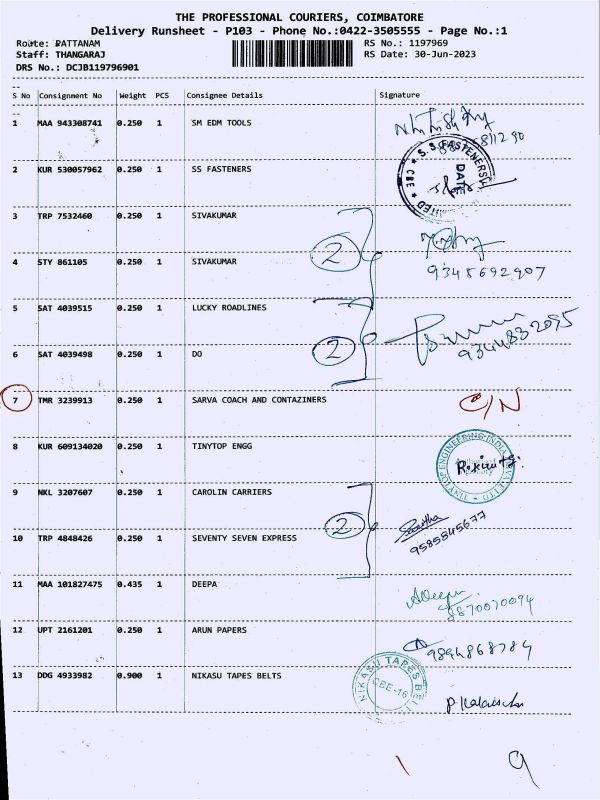 THE PROFESSIONAL COURIERS, COIMBATORE
Delivery Runsheet - P103 - Phone No.:0422-3505555 - Page No.:1
Route: PATTANAM RS No.: 1197969
Staff: THANGARAJ RS Date: 30-Jun-2023
DRS No.: DCJB119796901
S No Consignment No Weight PCS Consignee Details Signature
1 MAA 943308741 0.250 1 SM EDM TOOLS
2 KUR 530057962 0.250 1 SS FASTENERS
S.S.FASTENERS
DATE
CBE
3 TRP 7532460 0.250 1 SIVAKUMAR
2
4 STY 861105 0.250 1 SIVAKUMAR
9345692907
5 SAT 4039515 0.250 1 LUCKY ROADLINES
9344832095
6 SAT 4039498 0.250 1 DO
2
7 TMR 3239913 0.250 1 SARVA COACH AND CONTAZINERS C/N
8 KUR 609134020 0.250 1 TINYTOP ENGG
TINYTOP ENGINEERING INDIA
9 NKL 3207607 0.250 1 CAROLIN CARRIERS
2
9585545677
10 TRP 4848426 0.250 1 SEVENTY SEVEN EXPRESS
11 MAA 101827475 0.435 1 DEEPA
ADeepa
8870070094
12 UPT 2161201 0.250 1 ARUN PAPERS
9894868784
13 DDG 4933982 0.900 1 NIKASU TAPES BELTS
NIKASU TAPES BELTS
CBE-16
9